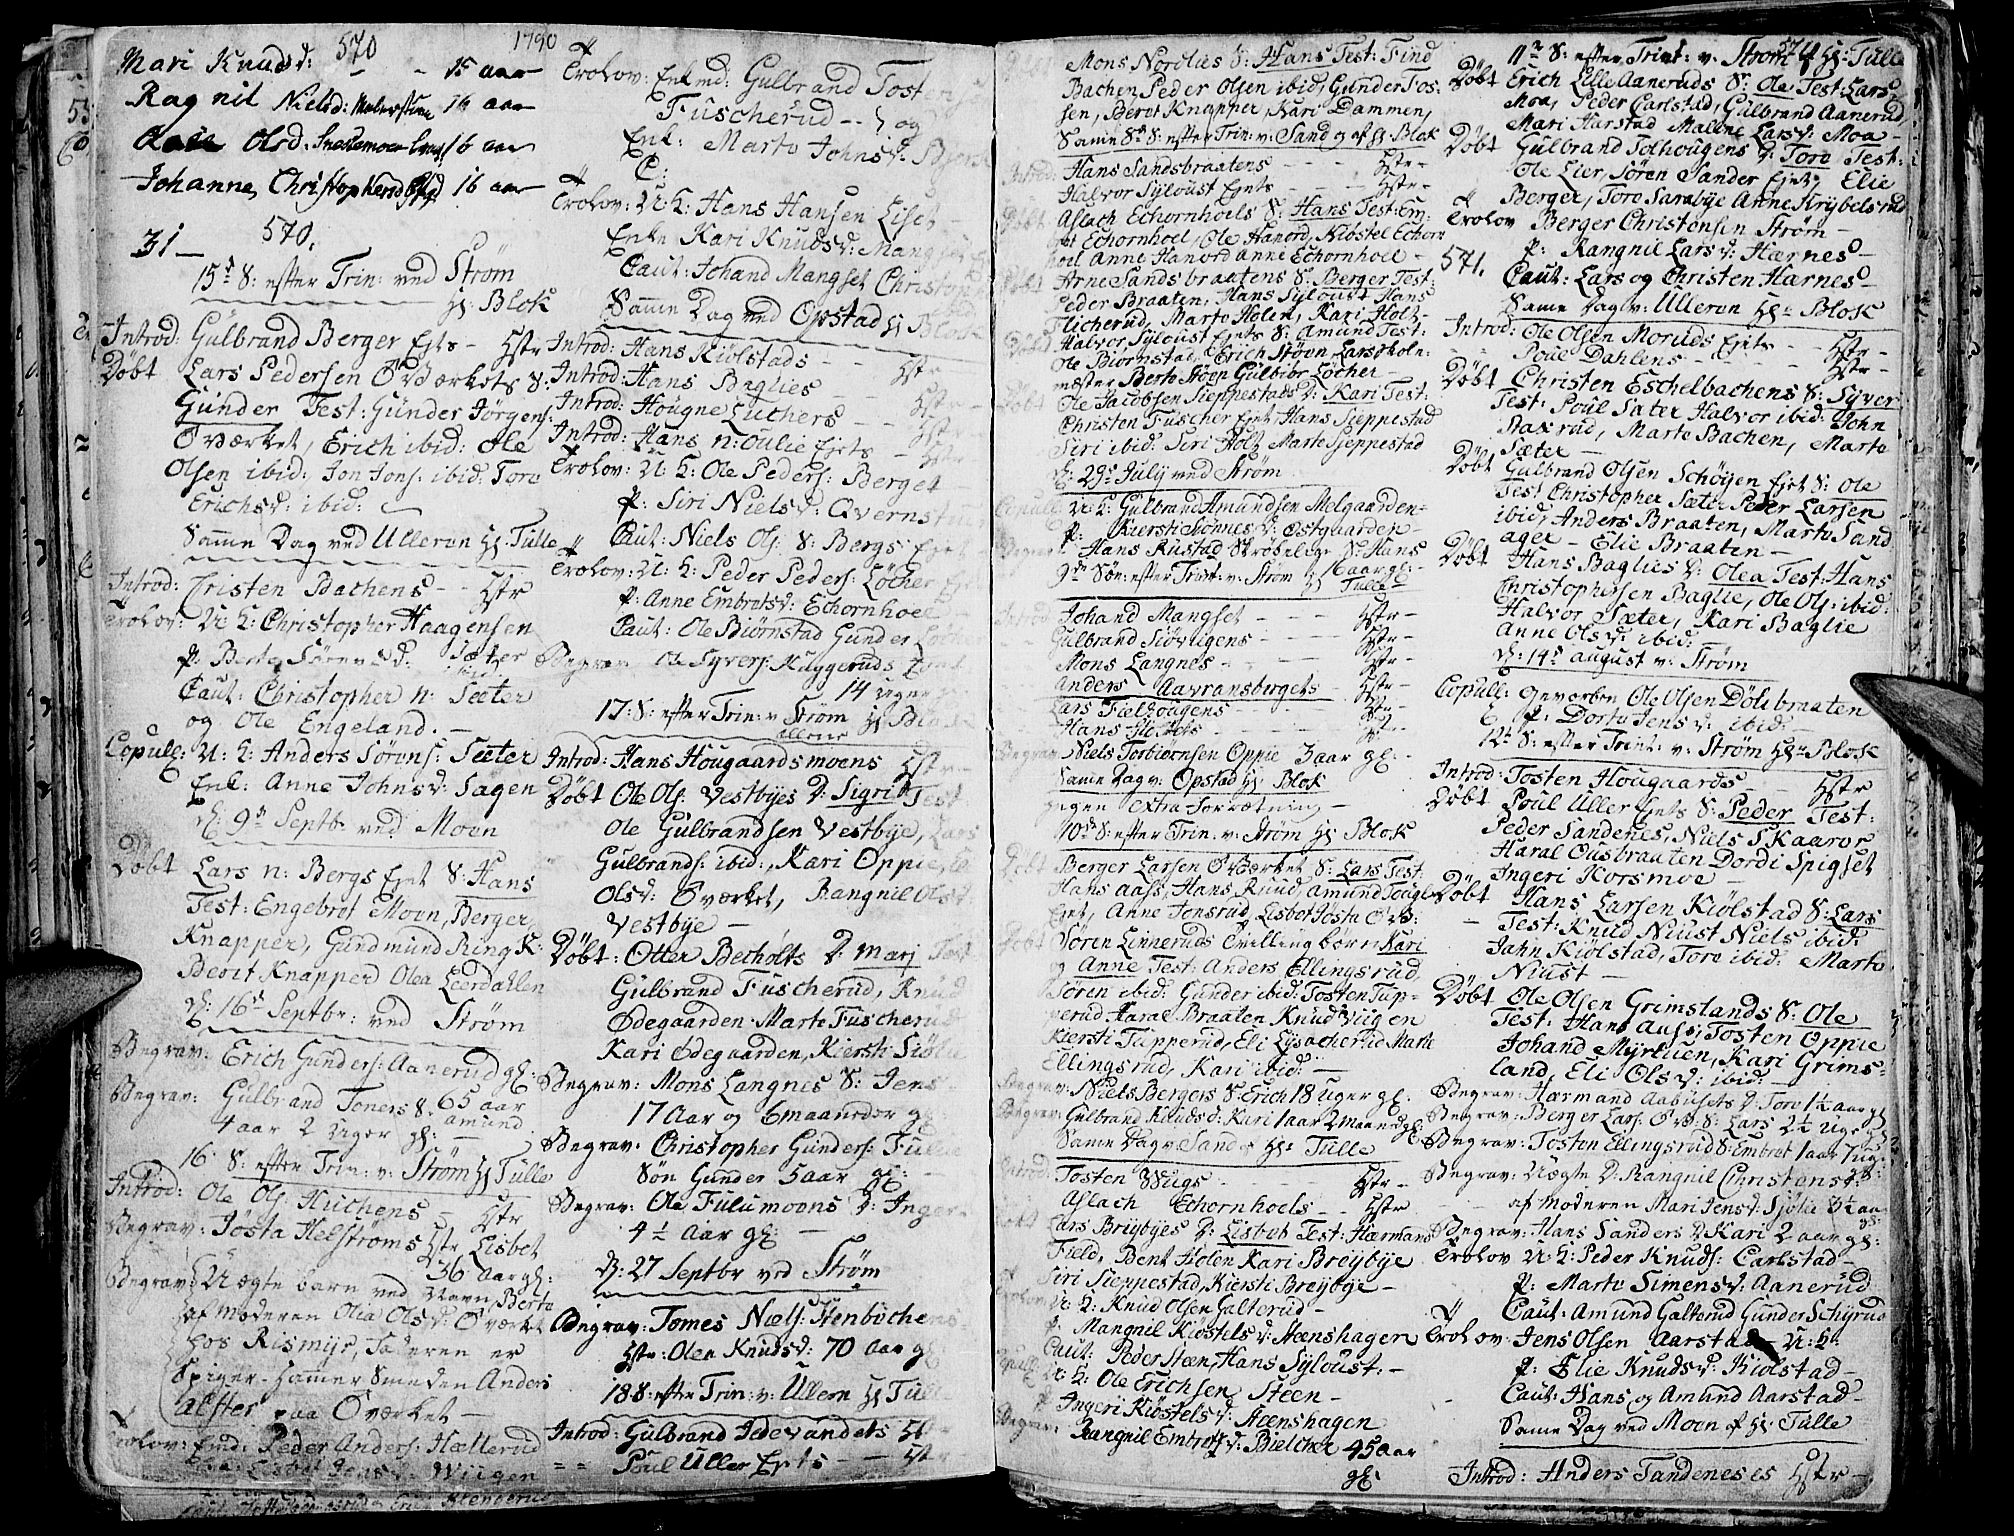 570
1790
Mari Knudsd: - - 15 aar
Ragnil Nielsd: 16 aar
Olsd. 16 aar
Johanne Christophersd 16 aar
31 — 570.
15d S: efter Trin: ved Strøm
H: Blok
Introd: Gulbrand Berger Ejets - Hstr
Døbt Lars Pedersen Oværkets S:
Gunder Test: Gunder Jørgens:
Oværket, Erich ibid: Ole
Olsen ibid: Jon Jons: ibid: Toro
Erichsd: ibid:
Samme Dag ved Ulleron H: Tulle
Introd: Cristen Bachens - - Hstr
Trolov: U: K: Christopher Haagensen
p: Berte Sørensd: Sæter
Caut: Christopher n: Sæter
og Ole Engeland. —
Copull: U: K: Anders Sørens: Sæter
Enk: Anne Johnsd: Sagen
d: 9d Septbr: ved Moen
Døbt Lars n: Bergs Ejet S: Hans
Test: Engebret Moen, Berger
Knapper, Gundmund Ring K:
Berit Knapper Olea Leerdahlen
d: 16d Septbr: ved Strøm
Begrav: Erich Gunders: Aanerud gl:
65 aar
Begrav: Gulbrand Toners S. Amund
4 aar 2 Uger gl: —
16 S: efter Trin: v: Strøm H Tulle
Introd: Ole Ols: Huchens - Hstr
Begrav: Josta Helstrøms Hstr Lisbet
36 Aar gl:
Begrav: Uægte barn ved Navn Berte
af Moderen Olia Olsd: Oværket
hos Rismyr, Faderen er
Spiger-Hammer Smeden Anders
Alfter paa Oværket —
Trolov: Emd: Peder Anders: Hællerud
Lisbet Jensd: Wiigen
Trolov: Enkmd: Gulbrand Tosten
Fuscherud - - og
Enk: Marte Johnsd:
Trolov: U: K: Hans Hansen Liset
Enke Kari Knudsd: Mangset
Caut: Johand Mangset Christoph
Samme Dag ved Opstad H Blok
Introd: Hans Kiølstads - - Hstr
Introd: Hans Baglies - Hstr
Introd: Hougne Luchers - - Hstr
Introd: Hans n: Oulie Ejets - Hstr
Trolov: U: K: Ole Peders: Berget
p: Siri Nielsd: Qvernst
Caut: Niels Ols: S: Bergs Ejet
Trolov: U: K: Peder Peders: Løcher
p: Anne Embretsd: Echornhoel
Caut: Ole Biørnstad Gunder
Begrav: Ole Syvers: Kuggeruds
14 Uger
17: S: efter Trin: v Strøm H Blok
Introd: Hans Hougaardsmoens Hstr -
Døbt Ole Ols: Vestbyes D: Sigrid Test
Ole Gulbrandsen Vestbye, Lars
Gulbrands: ibid:, Kari Oppie,
Olsd: Oværket, Rangnil Olsd:
Vestbye —
Døbt: Otter Betholts D: Marj Test
Gulbrand Fuscherud, Knud
Ødegaarden. Marte Fuscherud
Kari Ødegaarden, Kiersti Siølie
Begrav: Mons Langnes S: Jens
17 Aar og 6 maaneder gl:
Begrav: Christopher Gunders: Fulu
Søn Gunder 5 aar gl: —
Begrav: Ole Fulumoens D: Inger
4½ Aar gl: —
d: 27 Septbr ved Strøm
Begrav: Tomes Niels: Stenbychens
Hstr: Olea Knudsd: 70 Aar gl
18 S: efter Trin: v: Ullern H Tull
Introd: Gulbrand Jedevandets Hstr
- - Poul Uller Ejets - - Hstr
Mons Nordlies S: Hans Test: Find
Bachen Peder Olsen ibid, Gunder Tos-
sen, Beret Knapper, Kari Dammen,
Same 8d S: efter Trin: v: Sand og af H Blok
Introd: Hans Sandsbraatens - - - Hstr -
Halvor Syloust Ejets - - - Hstr -
Døbt Aslach Echornhoels S: Hans Test: Em-
bret Echornhoel, Ole Hanord, Kiøstel Echorn
hoel Anne Hanord Anne Echornhoel -
Døbt Arne Sandsbraatens S: Berger Test:
Peder Braaten, Hans Syloust Hans
Flicherud, Marte Holen, Kari Holt-
Døbt Halvor Syloust Ejets S: Amund Test:
Ole Biornstad, Erich Støen Lars Skole
mæster Berte Støen Gulbiør Løcher -
Døbt Ole Jacobsen Sieppestads D: Kari Test:
Christen Fuscher Ejet Hans Sieppestad
Siri ibid: Siri Holt Marte Sieppestad
d: 29d July ved Strøm
Copull: U: K: Gulbrand Amundsen Melgaarden-
p: Kiersti Simonsd: Østgaarden -
Begrav: Hans Rustad S: Hans
16 aar gl: -
9de Søn: efter Trin: v: Strøm H Tulle
Introd Johand Mangset - - - Hstr -
Gulbrand Siøvigens - - - Hstr -
Mons Langnes - - - Hstr -
Anders Aavransbergets - Hstr -
Lars Fielhougens - - - Hstr -
Begrav: Niels Torbiørnsen Oppie 3 aar gl:
Same Dag v: Opstad H Blok
Ingen Extra Forrætning —
10d S: efter Trin: v: Strøm H Blok
Døbt Berger Larsen Oværket S: Lars Test:
Hans Aass, Hans, Knud, Amund Toug
Ejet, Anne Jonsrud, Lisbet Josta Ov:
Døbt Søren Linneruds Tvillingbørn: Kari
og Anne Test: Anders Ellingsrud,
Søren ibid: Gunder ibid: Tosten Tup-
perud Haral Braaten Knud Viigen
Kiersti Tupperud, Eli Lysacherud Marte
Ellingsrud, Kari ibid: —
Begrav: Niels Bergers S: Erich 18 Uger gl: -
Begrav: Gulbrand Kari 1 aar 2 maaned gl:
Same Dag v: Sand H: Tulle
Introd: Tosten Wiigs - - - Hstr -
Aslach Echornhoels - - Hstr
Døbt Lars Breybyes D: Lisbet Test: Hærmand
Field, Bent Holen Kari Breybye
Siri Sieppestad, Kiersti Breybye -
Trolov: U: K: Knud Olsen Galterud -
p: Mangnil Kiøstelsd: Steenshagen
Caut: Peder Steen, Hans Syloust: -
Copull: U: K: Ole Erichsen Steen -
p: Ingeri Kiøstelsd: Steenshagen
Begrav: Rangnil Embretsd: Bielcher 45 aar
gl:
571
11d S: efter Trint: v: Strøm H: Tulle
Døbt Erich Lilleaaneruds Sn Ole Test: Lars
Moa, Peder Carlstad, Gulbrand Aanerud,
Mari Harstad Malene Larsd: Moa -
Døbt Gulbrand Tolhougens D: Toro Test:
Ole Lier, Søren Sander Ejet, Elie
Berger, Toro Sarabye Anne Krybelsrud
Trolov Berger Christensen Strøm -
p: Rangnil Larsd: Hærnes -
571. Caut: Lars og Christen Harnes -
Same Dag v: Ulleron H: Blok
Introd: Ole Olsen Moruds Ejets - Hstr -
- - Poul Dahlens - - - Hstr -
Døbt Christen Eschelbachens S: Syver
Test: Poul Sæter Halvor ibid: John
Staxrud, Marte Bachen, Marte
Sæter -
Døbt Gulbrand Olsen Schøyen Ejet S: Ole
Test Christopher Sæter Peder Larsen
ibid, Anders Braaten, Marte Sand
ager - Elie Braaten -
Døbt Hans Baglies D: Olea Test: Hans
Christophersen Baglie, Ole Ols: ibid:
Halvor Sæter, Kari Baglie
Anne Olsd: ibid: -
d: 14d August v: Strøm
Copull: Geværben Ole Olsen Dølibraaten
p: Dorte Jensd: ibid -
12t S: efter Trint: v: Strøm H: Blok
Introd: Tosten Hougaards - - Hstr
Døbt Poul Uller Ejets S: Peder Test:
Peder Sandenes, Niels Skaaror
Haral Ousbraaten Dordi Spigset
Ingeri Korsmoe -
Døbt Hans Larsen Kiølstad S: Lars
Test: Knud Niust Niels ibid:
Jahn Kiølstad, Toro ibid: Marte
Niust —
Døbt Ole Olsen Grimstands S: Ole
Test: Hans Aass, Tosten Oppie
Johand Myrluen, Kari Grims-
land, Eli Olsd: ibid: -
Begrav: Hærmand Aabusets D: Toro 1¼ aar gl
Begrav: Berger Lars: Ov: S: Lars 2½ Uge gl
Begrav: Tosten Ellingsrud S: Embret 1 aar 7 uge
Begrav: Uægte D: Rangnil Christensd:
af Moderen Mari Jensd: Sjølie 3½ aar
gl:
Begrav: Hans Sanders D Kari 2 aar gl: -
Trolov U: K: Peder Knuds: Carlstad -
p: Marte Simensd: Aanerud
Caut: Amund Galterud Gunder Schyrud
Trolov: Jens Olsen Aarstad U: K:
p: Elie Knudsd: Kiølstad -
Caut: Hans og Amund Aarstad -
Same Dag ved Moen af H: Tulle
Introd: Anders Tandenes es Hstr -